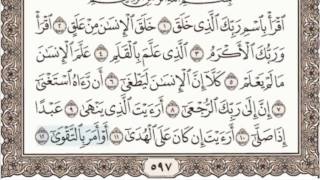 ٱقۡرَأۡ بِٱسۡمِ رَبِّكَ ٱلَّذِي خَلَقَ ١ خَلَقَ ٱلۡإِنسَٰنَ مِنۡ عَلَقٍ ٢ ٱقۡرَأۡ
وَرَبُّكَ ٱلۡأَكۡرَمُ ٣ ٱلَّذِي عَلَّمَ بِٱلۡقَلَمِ ٤ عَلَّمَ ٱلۡإِنسَٰنَ
مَا لَمۡ يَعۡلَمۡ ٥ كَلَّآ إِنَّ ٱلۡإِنسَٰنَ لَيَطۡغَىٰٓ ٦ أَن رَّءَاهُ ٱسۡتَغۡنَىٰٓ
٧ إِنَّ إِلَىٰ رَبِّكَ ٱلرُّجۡعَىٰٓ ٨ أَرَءَيۡتَ ٱلَّذِي يَنۡهَىٰ ٩ عَبۡدًا
إِذَا صَلَّىٰٓ ١٠ أَرَءَيۡتَ إِن كَانَ عَلَى ٱلۡهُدَىٰٓ ١١ أَوۡ أَمَرَ بِٱلتَّقۡوَىٰٓ ١٢
٥٩٧